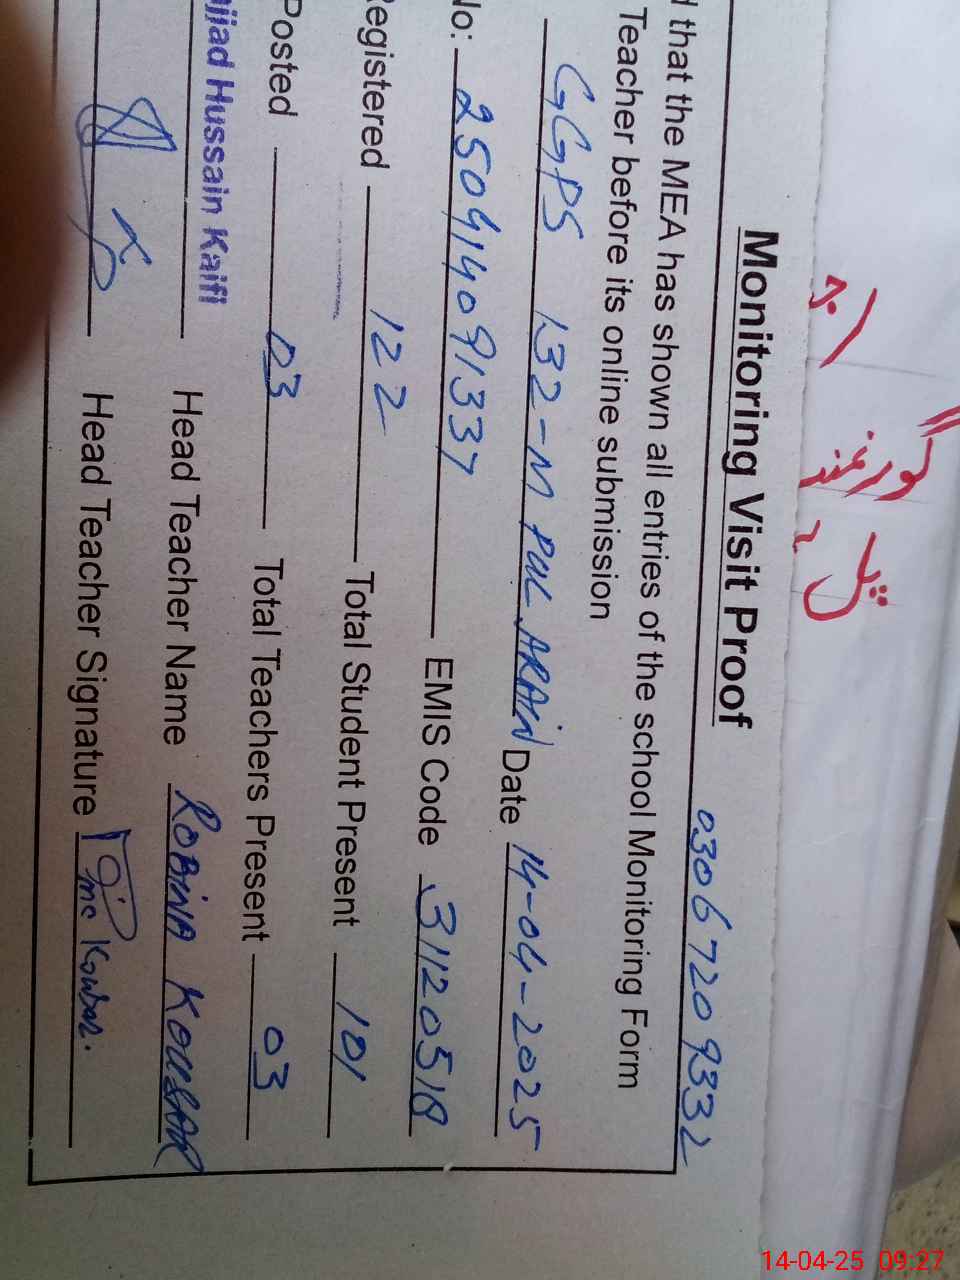 Monitoring Visit Proof
0306 7209332
that the MEA has shown all entries of the school Monitoring Form
Teacher before its online submission
GGPS 132-M PUL ARAIN Date 14-04-2025
No: 250414091337 EMIS Code 31120518
Registered 122 Total Student Present 101
Posted 03 Total Teachers Present 03
Hussain Kaifi Head Teacher Name ROBINA KOUSAR
Head Teacher Signature
14-04-25 09:27